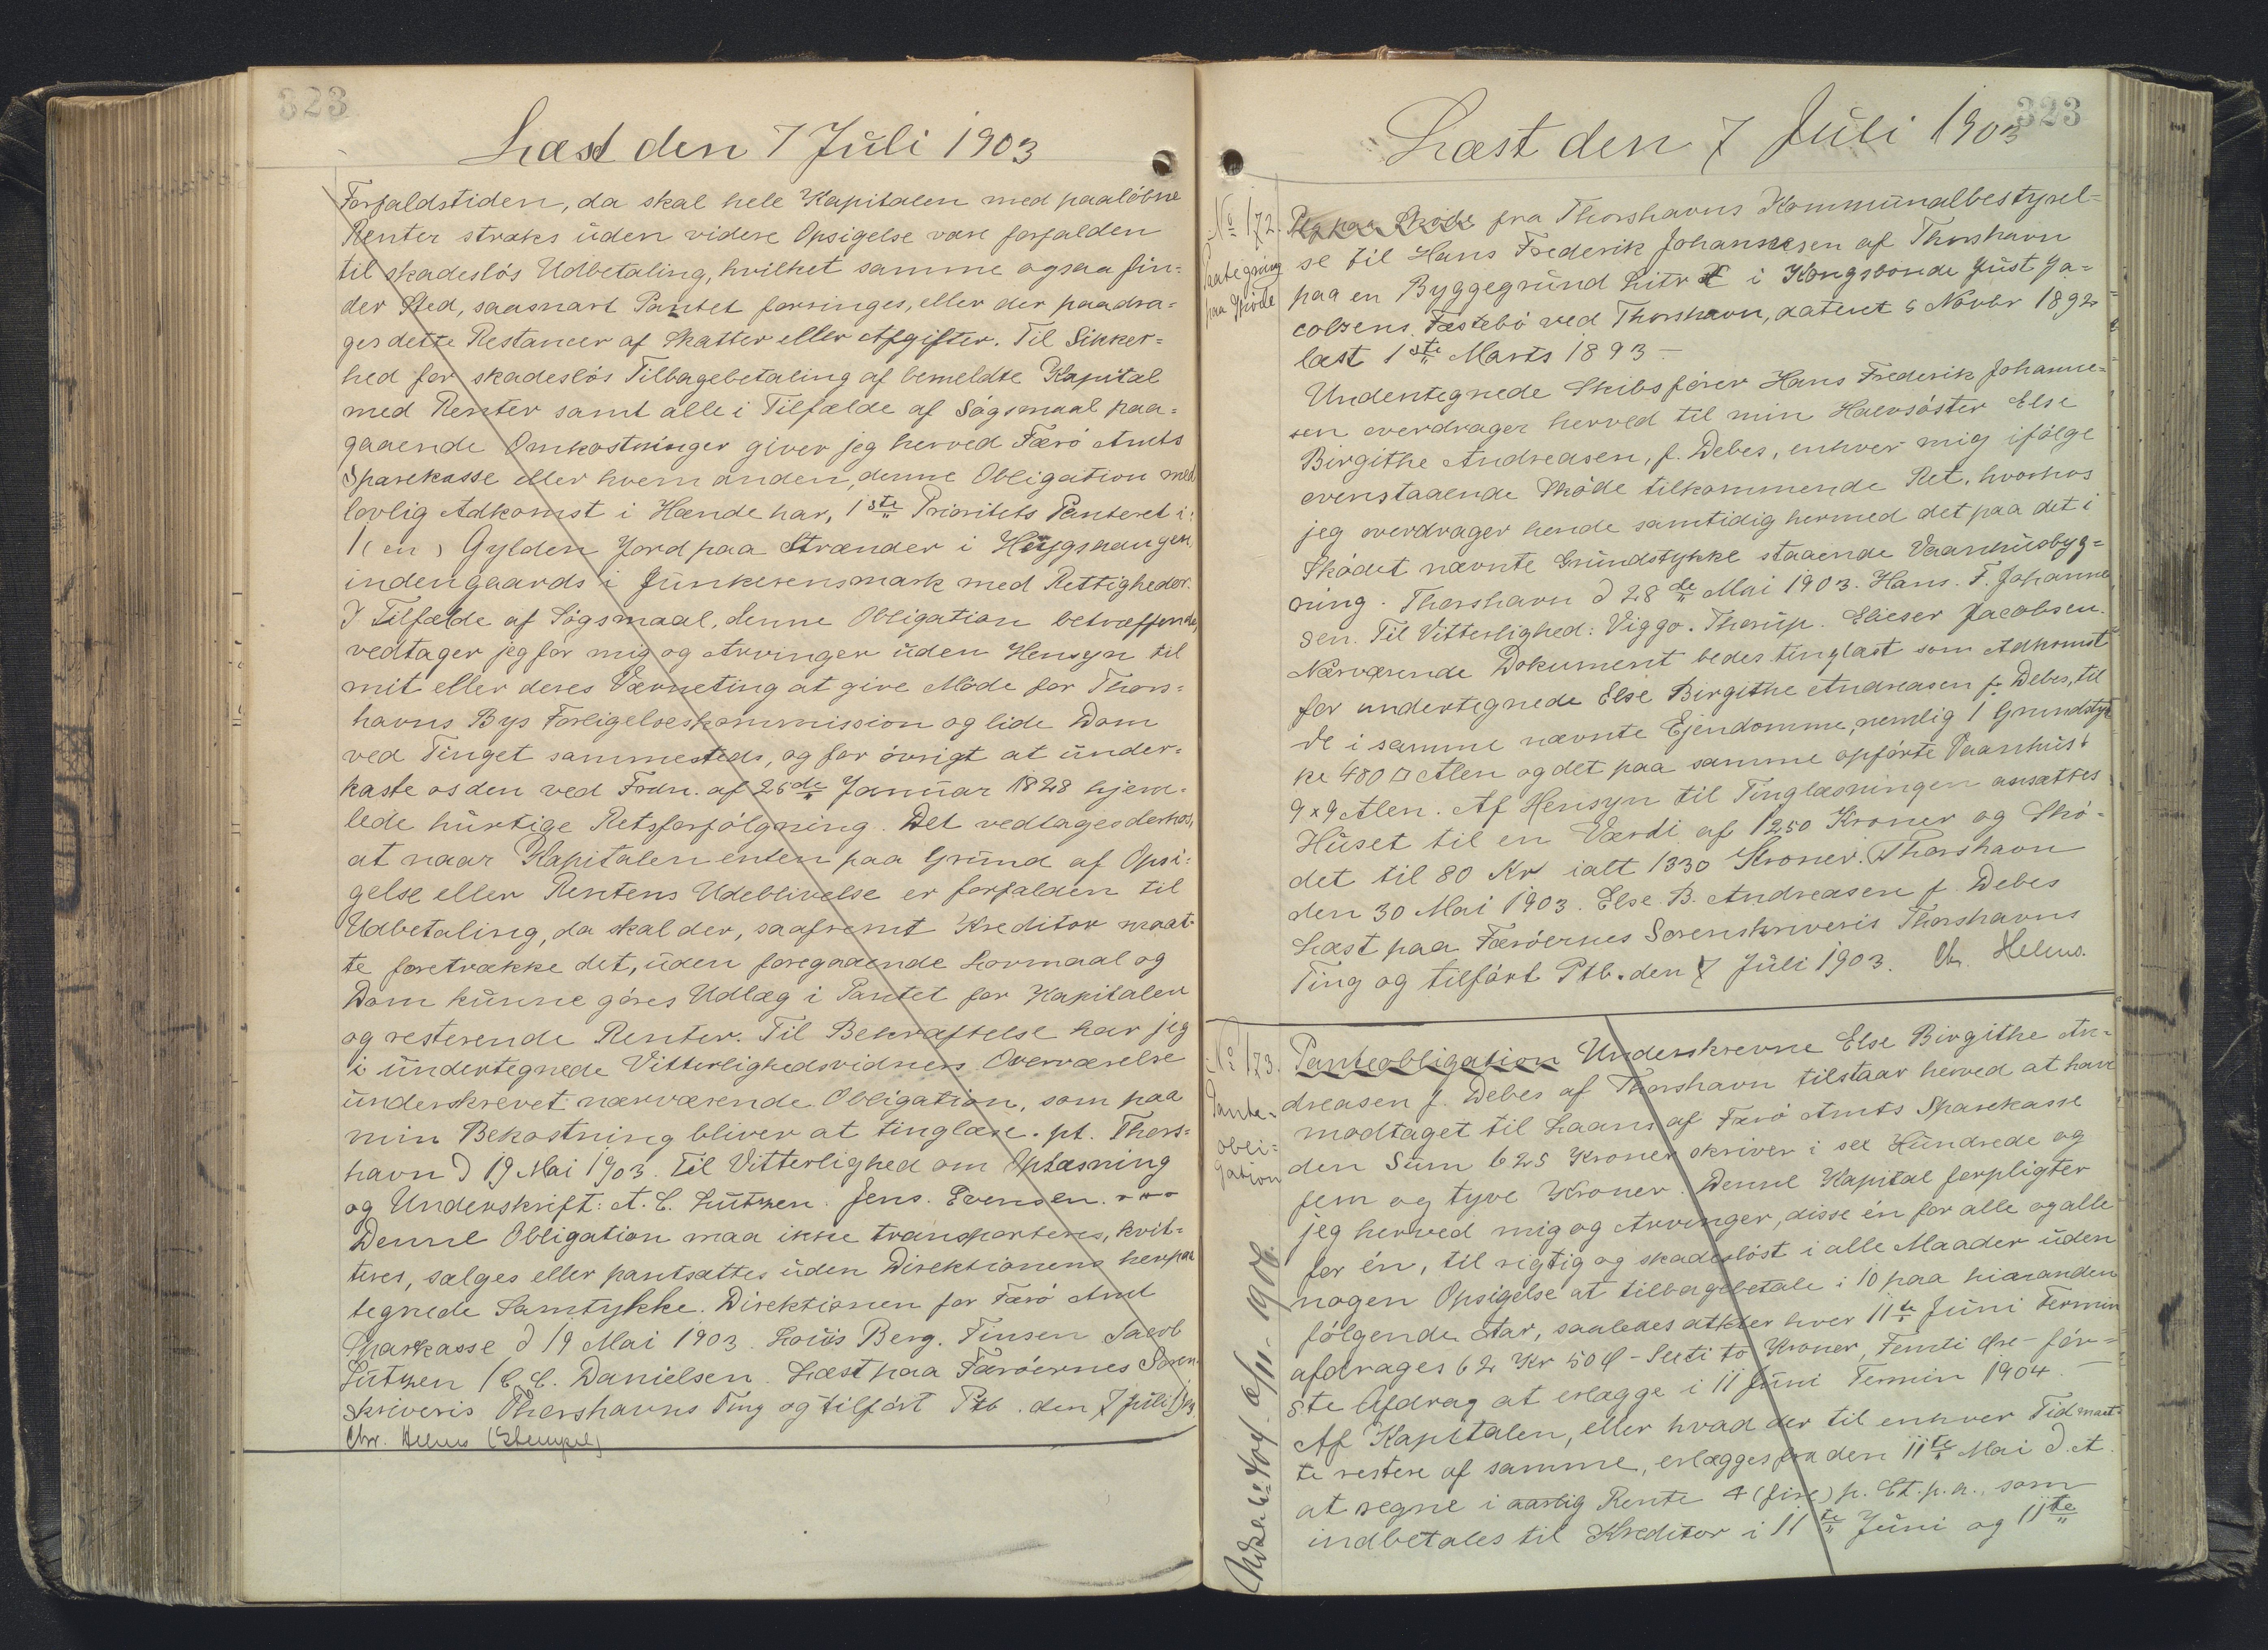 323
Læst den 7 Juli 1903
Forfaldstiden, da skal hele Kapitalen med paaløbne
Renter straks uden videre Opsigelse være forfalden
til skadesløs Udbetaling, hvilket samme ogsaa fin-
der Sted, saasnart Pantet forringes, eller der paadra-
ges dette Restancer af Skatter eller Afgifter. Til Sikker-
hed for skadesløs Tilbagebetaling af bemeldte Kapital
med Renter samt alle i Tilfælde af Søgsmaal paa-
gaaende Omkostninger giver jeg herved Færø Amts
Sparekasse eller hvem anden, denne Obligation med
lovlig Adkomst i Hænde har, 1ste Prioritets Panteret i:
1 (en) Gylden Jord paa Strænder i Húgshaugen
indengaards i Junkerensmark med Rettigheder.
I Tilfælde af Søgsmaal, denne Obligation betræffende,
vedtager jeg for mig og Arvinger uden Hensyn til
mit eller deres Værneting at give Møde for Thors-
havns Bys Forligelseskommission og lide Dom
ved Tinget sammesteds, og for øvrigt at under-
kaste os den ved Frdn. af 25de Januar 1828 hjem-
lede hurtige Retsforfølgning. Det vedtages derhos,
at naar Kapitalen enten paa Grund af Opsi-
gelse eller Rentens Udeblivelse er forfalden til
Udbetaling, da skal der, saafremt Kreditor maat-
te foretrække det, uden foregaaende Lovmaal og
Dom kunne gøres Udlæg i Pantet for Kapitalen
og resterende Renter. Til Bekræftelse har jeg
i undertegnede Vitterlighedsvidners Overværelse
underskrevet nærværende Obligation, som paa
min Bekostning bliver at tinglæse. pt. Thors-
havn d 19 Mai 1903. Til Vitterlighed om Oplæsning
og Underskrift: A. C. Lützen. Jens. Evensen.
Denne Obligation maa ikke transporteres, kvit-
teres, sælges eller pantsættes uden Direktionens herpaa
tegnede Samtykke. Direktionen for Færø Amt
Sparekasse d 19 Mai 1903. Louis Berg. Finsen Jacob
Lützen / C. C. Danielsen. Læst paa Færøernes Soren-
skriveris Thorshavns Ting og tilført Ptb. den 7 Juli 1903
Chr. Helms (Stempel)
323
Læst den 7 Juli 1903
No 172. Ptg paa Skøde fra Thorshavns Kommunalbestyrel-
Paategning se til Hans Frederik Johannesen af Thorshavn
paa Skøde paa en Byggegrund Litr i Kongsbonde Just Ja-
cobsens Fæstebø ved Thorshavn, dateret 5 Novbr 1892
læst 1ste Marts 1893 —
Undertegnede Skibsfører Hans Frederik Johanne-
sen overdrager herved til min Halvsøster Else
Birgithe Andreasen, f. Debes, enhver mig ifølge
ovenstaaende Skøde tilkommende Ret, hvorhos
jeg overdrager hende samtidig hermed det paa det i
Skødet nævnte Grundstykke staaende Vaanhusbyg-
ning. Thorshavn d 28de Mai 1903. Hans. F. Johanne
sen. Til Vitterlighed: Viggo. Thorup. Elieser Jacobsen.
Nærværende Dokument bedes tinglæst som Adkomst
for undertegnede Else Birgithe Andreasen f. Debes, til
de i samme nævnte Ejendomme, nemlig 1 Grundstyk
ke 400 □ Alen og det paa samme opførte Vaanhus
9 x 9 Alen. Af Hensyn til Tinglæsningen ansættes
Huset til en Værdi af 1250 Kroner og Skø-
det til 80 Kr ialt 1330 Kroner. Thorshavn
den 30 Mai 1903. Else B. Andreasen f. Debes
Læst paa Færøernes Sorenskriveris Thorshavns
Ting og tilført Ptb. den 7 Juli 1903. Chr. Helms.
No 173. Panteobligation Underskrevne Else Birgithe An-
Pante- dreasen f. Debes af Thorshavn tilstaar herved at have
obli- modtaget til Laans af Færø Amts Sparekasse
gation den Sum 625 Kroner skriver i sex Hundrede og
fem og tyve Kroner. Denne Kapital forpligter
jeg herved mig og Arvinger, disse én for alle og alle
for én, til rigtig og skadesløst i alle Maader uden
nogen Opsigelse at tilbagebetale i 10 paa hinanden
følgende Aar, saaledes at der hver 11te Juni Termin
afdrages 62 Kr 50 Ø - Seeti to Kroner, Femti Øre - før-
ste Afdrag at erlægge i 11 Juni Termin 1904. —
Af Kapitalen, eller hvad der til enhver Tid maat-
te restere af samme, erlægges fra den 11te Mai d. A.
at regne i aarlig Rente 4 (fire) p. Ct. p. a., som
indbetales til Kreditor i 11te Juni og 11te